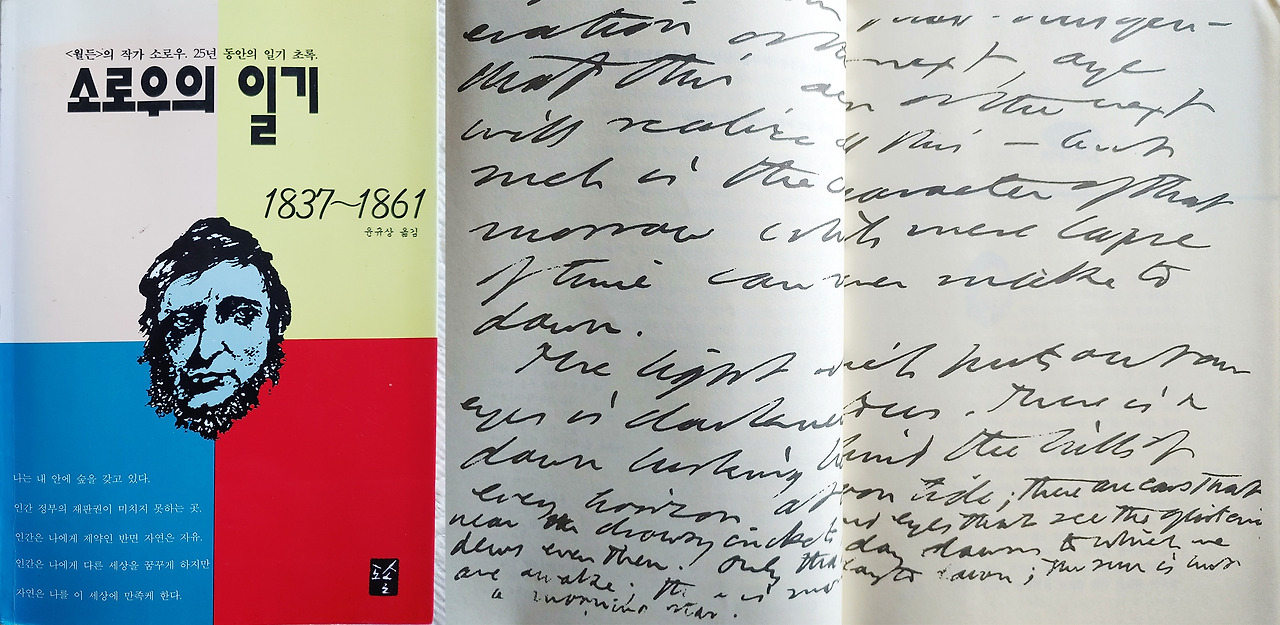 <월든>의 작가 소로우. 25년 동안의 일기 초록.
소로우의 일기
1837~1861
윤규상 옮김
나는 내 안에 숲을 갖고 있다.
인간 정부의 재판권이 미치지 못하는 곳.
인간은 나에게 제약인 반면 자연은 자유.
인간은 나에게 다른 세상을 꿈꾸게 하지만
자연은 나를 이 세상에 만족케 한다.
도솔
eration or next age
that this or the next
will realize all this — but
such is the character of that
morrow which mere lapse
of time can never make to
dawn.
The light which puts out our
eyes is darkness. There is a
dawn lurking behind the hills of
every horizon ; there are ears that
near the drowsy cricket and eyes that see the
dews even then. Only that day dawns to which we
are awake; there is more day to dawn; the sun is but
a morning star.